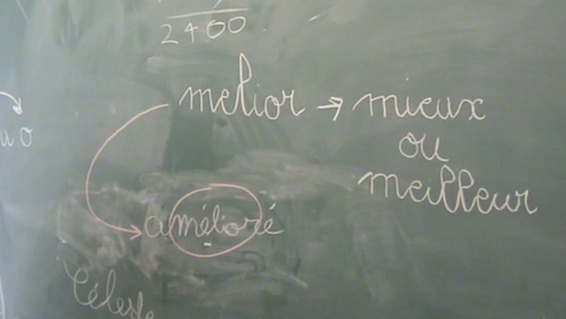 2400
melior → mieux
ou
meilleur
amélioré
Céleste